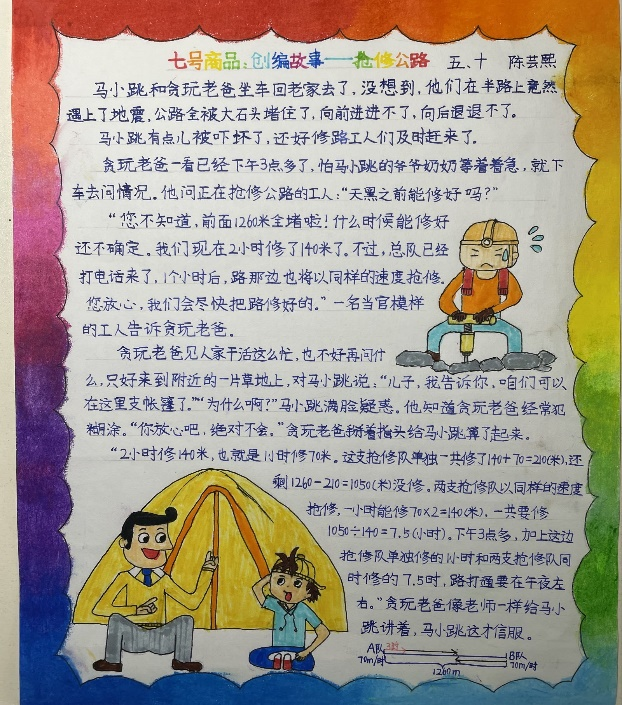 七号商品：创编故事——抢修公路 五、十 陈芸熙
马小跳和贪玩老爸坐车回老家去了，没想到，他们在半路上竟然
遇上了地震，公路全被大石头堵住了，向前进进不了，向后退退不了。
马小跳有点儿被吓坏了，还好修路工人们及时赶来了。
贪玩老爸一看已经下午3点多了，怕马小跳的爷爷奶奶等着着急，就下
车去问情况。他问正在抢修公路的工人：“天黑之前能修好吗？”
“您不知道，前面1260米全堵啦！什么时候能修好
还不确定。我们现在2小时修了140米了。不过，总队已经
打电话来了，1个小时后，路那边也将以同样的速度抢修。
您放心，我们会尽快把路修好的。”一名当官模样
的工人告诉贪玩老爸。
贪玩老爸见人家干活这么忙，也不好再问什
么，只好来到附近的一片草地上，对马小跳说：“儿子，我告诉你，咱们可以
在这里支帐篷了。”“为什么啊？”马小跳满脸疑惑。他知道贪玩老爸经常犯
糊涂。“你放心吧，绝对不会。”贪玩老爸掰着指头给马小跳算了起来。
“2小时修140米，也就是1小时修70米。这支抢修队单独一共修了140+70=210(米)，还
剩1260-210=1050(米)没修。两支抢修队以同样的速度
抢修，一小时能修70×2=140(米)，一共要修
1050÷140=7.5(小时)。下午3点多，加上这边
抢修队单独修的1小时和两支抢修队同
时修的7.5时，路打通要在午夜左
右。”贪玩老爸像老师一样给马小
跳讲着，马小跳这才信服。
A队 B队
70m/时 70m/时
1260m